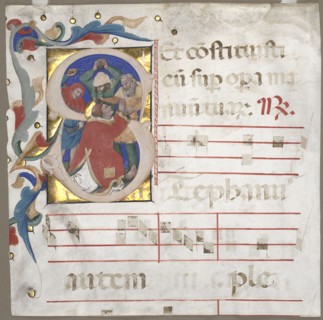 Et cōstituisti
eū sup opa ma
nuū tuaꝝ. ℟.
Stephanus
autem ple